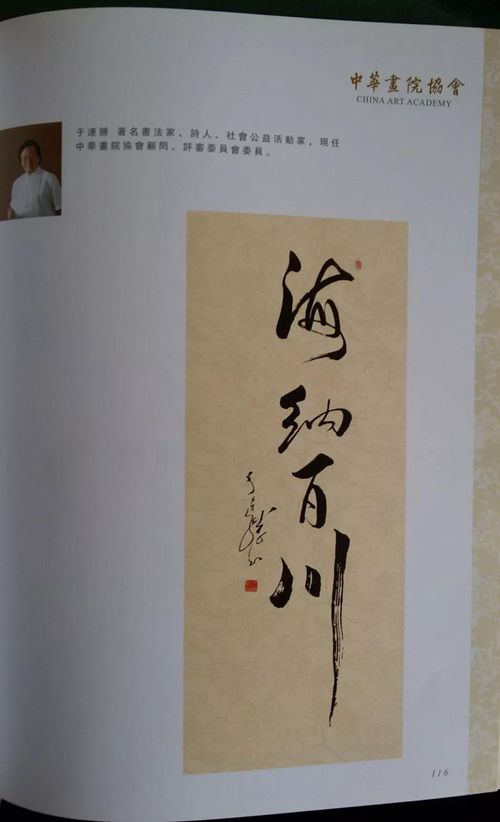 中華畫院協會
CHINA ART ACADEMY
于連勝 著名書法家、詩人、社會公益活動家，現任
中華畫院協會顧問、評審委員會委員。
海納百川
于連勝書
116